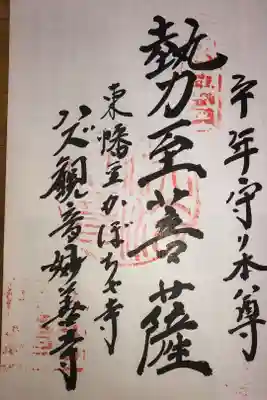 午年守り本尊
勢至菩薩
東幡豆かぼちゃ寺
ハズ観音妙善寺